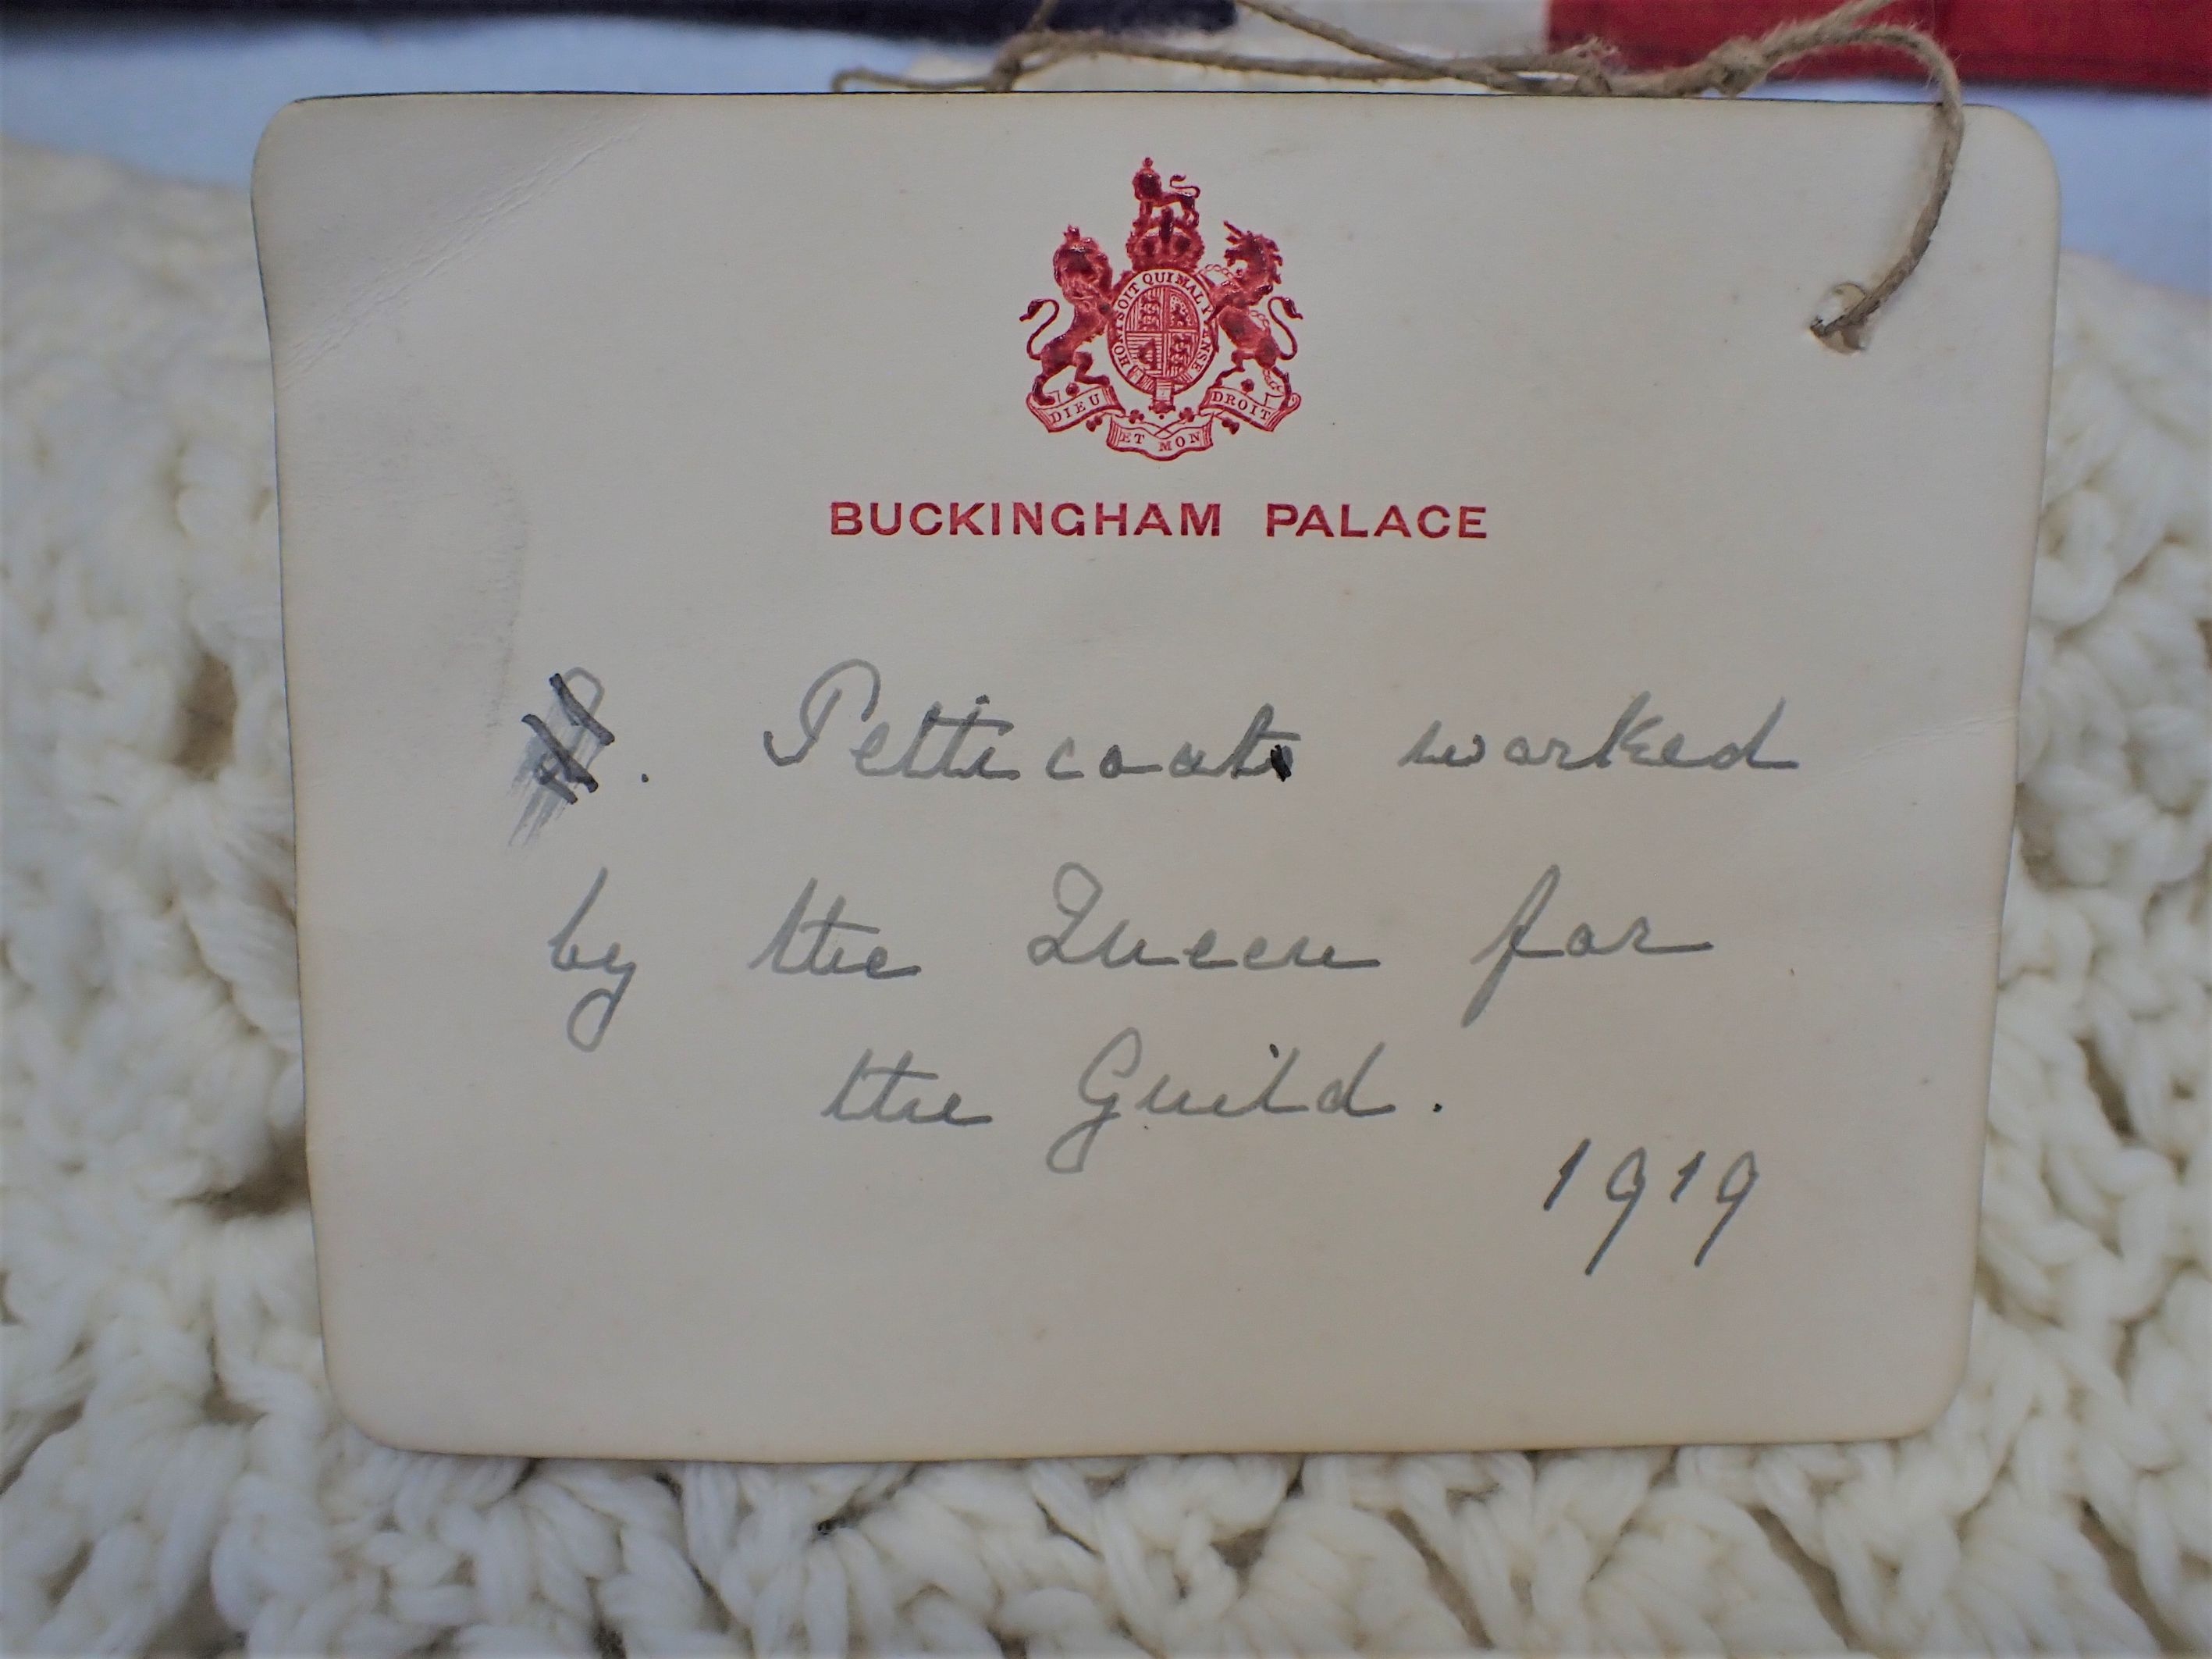 HONI SOIT QUI MAL Y PENSE
DIEU ET MON DROIT
BUCKINGHAM PALACE
. Petticoats worked
by the Queen for
the Guild.
1919